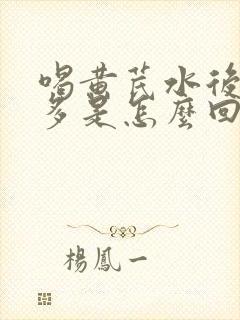 喝黃芪水後
多是怎麼回
楊鳳一